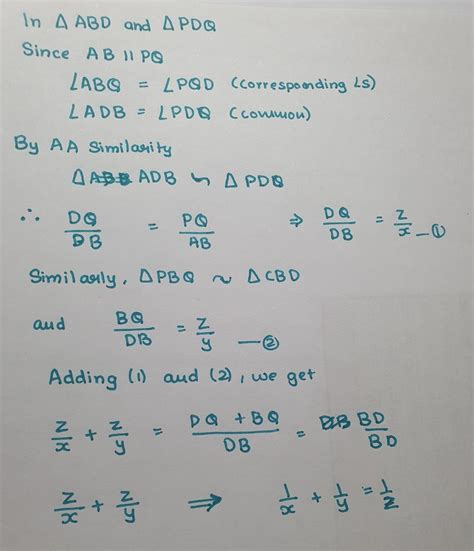 In Δ ABD and Δ PDQ
Since AB || PQ
∠ABQ = ∠PQD (corresponding ∠s)
∠ADB = ∠PDQ (common)
By AA Similarity
Δ ADB ∽ Δ PDQ
∴ DQ/DB = PQ/AB ⇒ DQ/DB = z/x —①
Similarly, Δ PBQ ~ Δ CBD
and BQ/DB = z/y —②
Adding (1) and (2), we get
z/x + z/y = DQ + BQ/DB = BD/BD
z/x + z/y ⇒ 1/x + 1/y = 1/z